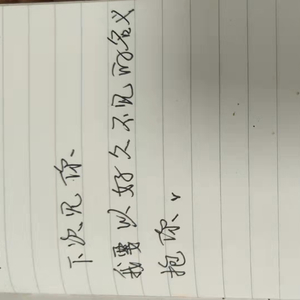 下次见你、
我要以好久不见的名义
抱你、